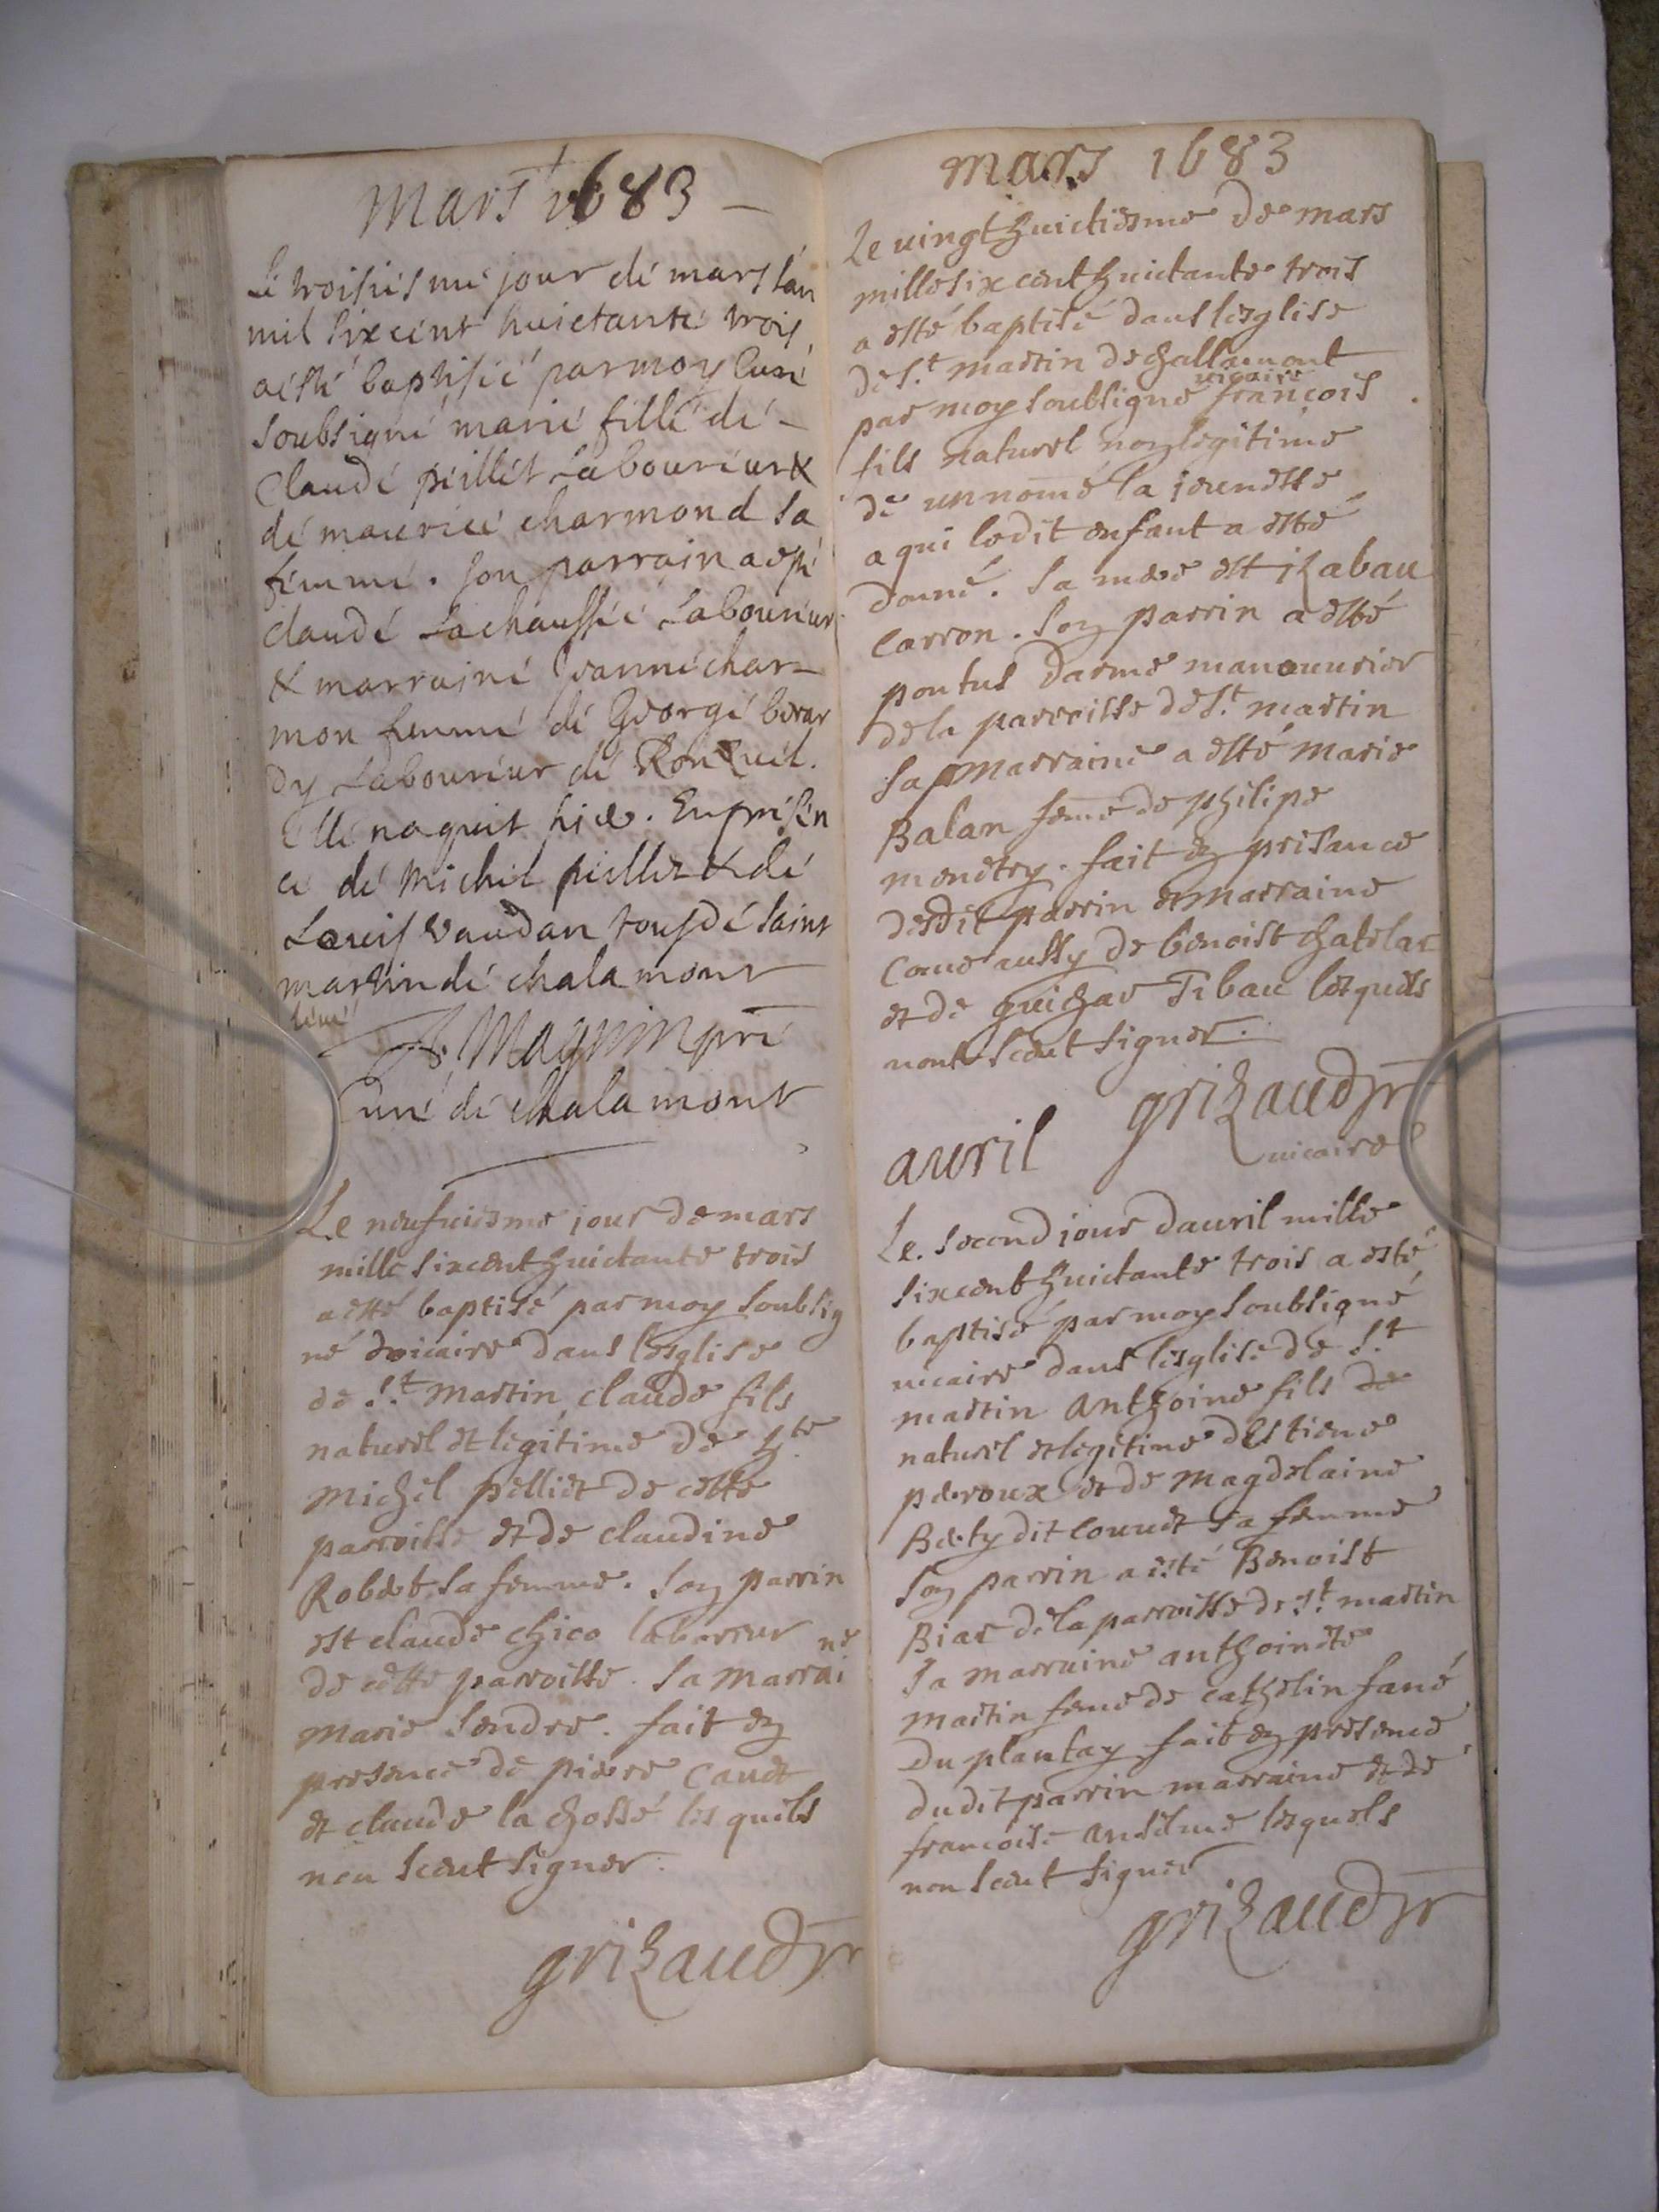 Mars 1683 –
Le troisiesme jour de mars lan
mil sixcent huictante trois
a esté baptisée par moy Curé
soubsigné marie fille de –
Claude peillet Laboureur &
de maurice charmond sa
femme. son parrain a esté
claude Lachaussée Laboureur
& marraine Jeanne char–
mon femme de George berar
dy Laboureur de Ronzuel.
elle naquit hier. En presen
ce de Michel peillet & de
Louis vaudan tous de saint
martin de chalamont
Magnin pre
Curé de chalamont
Le neufuiesme jour de mars
mille sixcent huictante trois
a esté baptisé par moy soubsig
né vicaire dans lesglise
de St Martin claude fils
naturel et legitime de hte
michel pelliet de cette
parroisse et de claudine
Robert sa femme. son parrin
est claude chico laboreur
de cette parroisse. sa marrai ne
Marie sendre. fait en
presence de pierre Caudt
et claude la chossé les quels
non sceut signer.
grizaud pr
mars 1683
Le vingt huictiesme de mars
mille six cent huictante trois
a esté baptisé dans lesglise
de St martin de challamont
par moy soubsigné vicaire françois
fils naturel non legitime
de un nomé la jeunesse
a qui ledit enfant a esté
donné. sa mere est izabau
Carron. son parrin a esté
pontus darme manouurier
de la parroisse de St martin
sa marraine a esté Marie
Balan feme de philipe
monetry. fait en presance
desdit parrin et marraine
Come aussy de benoist chatelar
et de guichar Tibau lesquels
nont sceut signer.
grizaud pr
vicaire
auril
Le second jour dauril mille
sixcent huictante trois a esté
baptisé par moy soubsigné
vicaire dans lesglise de St
martin anthoine fils de
naturel et legitime destiene
peroux et de Magdelaine
Berty dit Couuet sa femme
son parrin a esté Benoist
Biar de la parroisse de St martin
sa marraine anthoinete
martin feme de cathelin fané
Du plantay fait en presence
dudit parrin marraine et de
francoise anselme lesquels
non sceut signer
grizaud pr